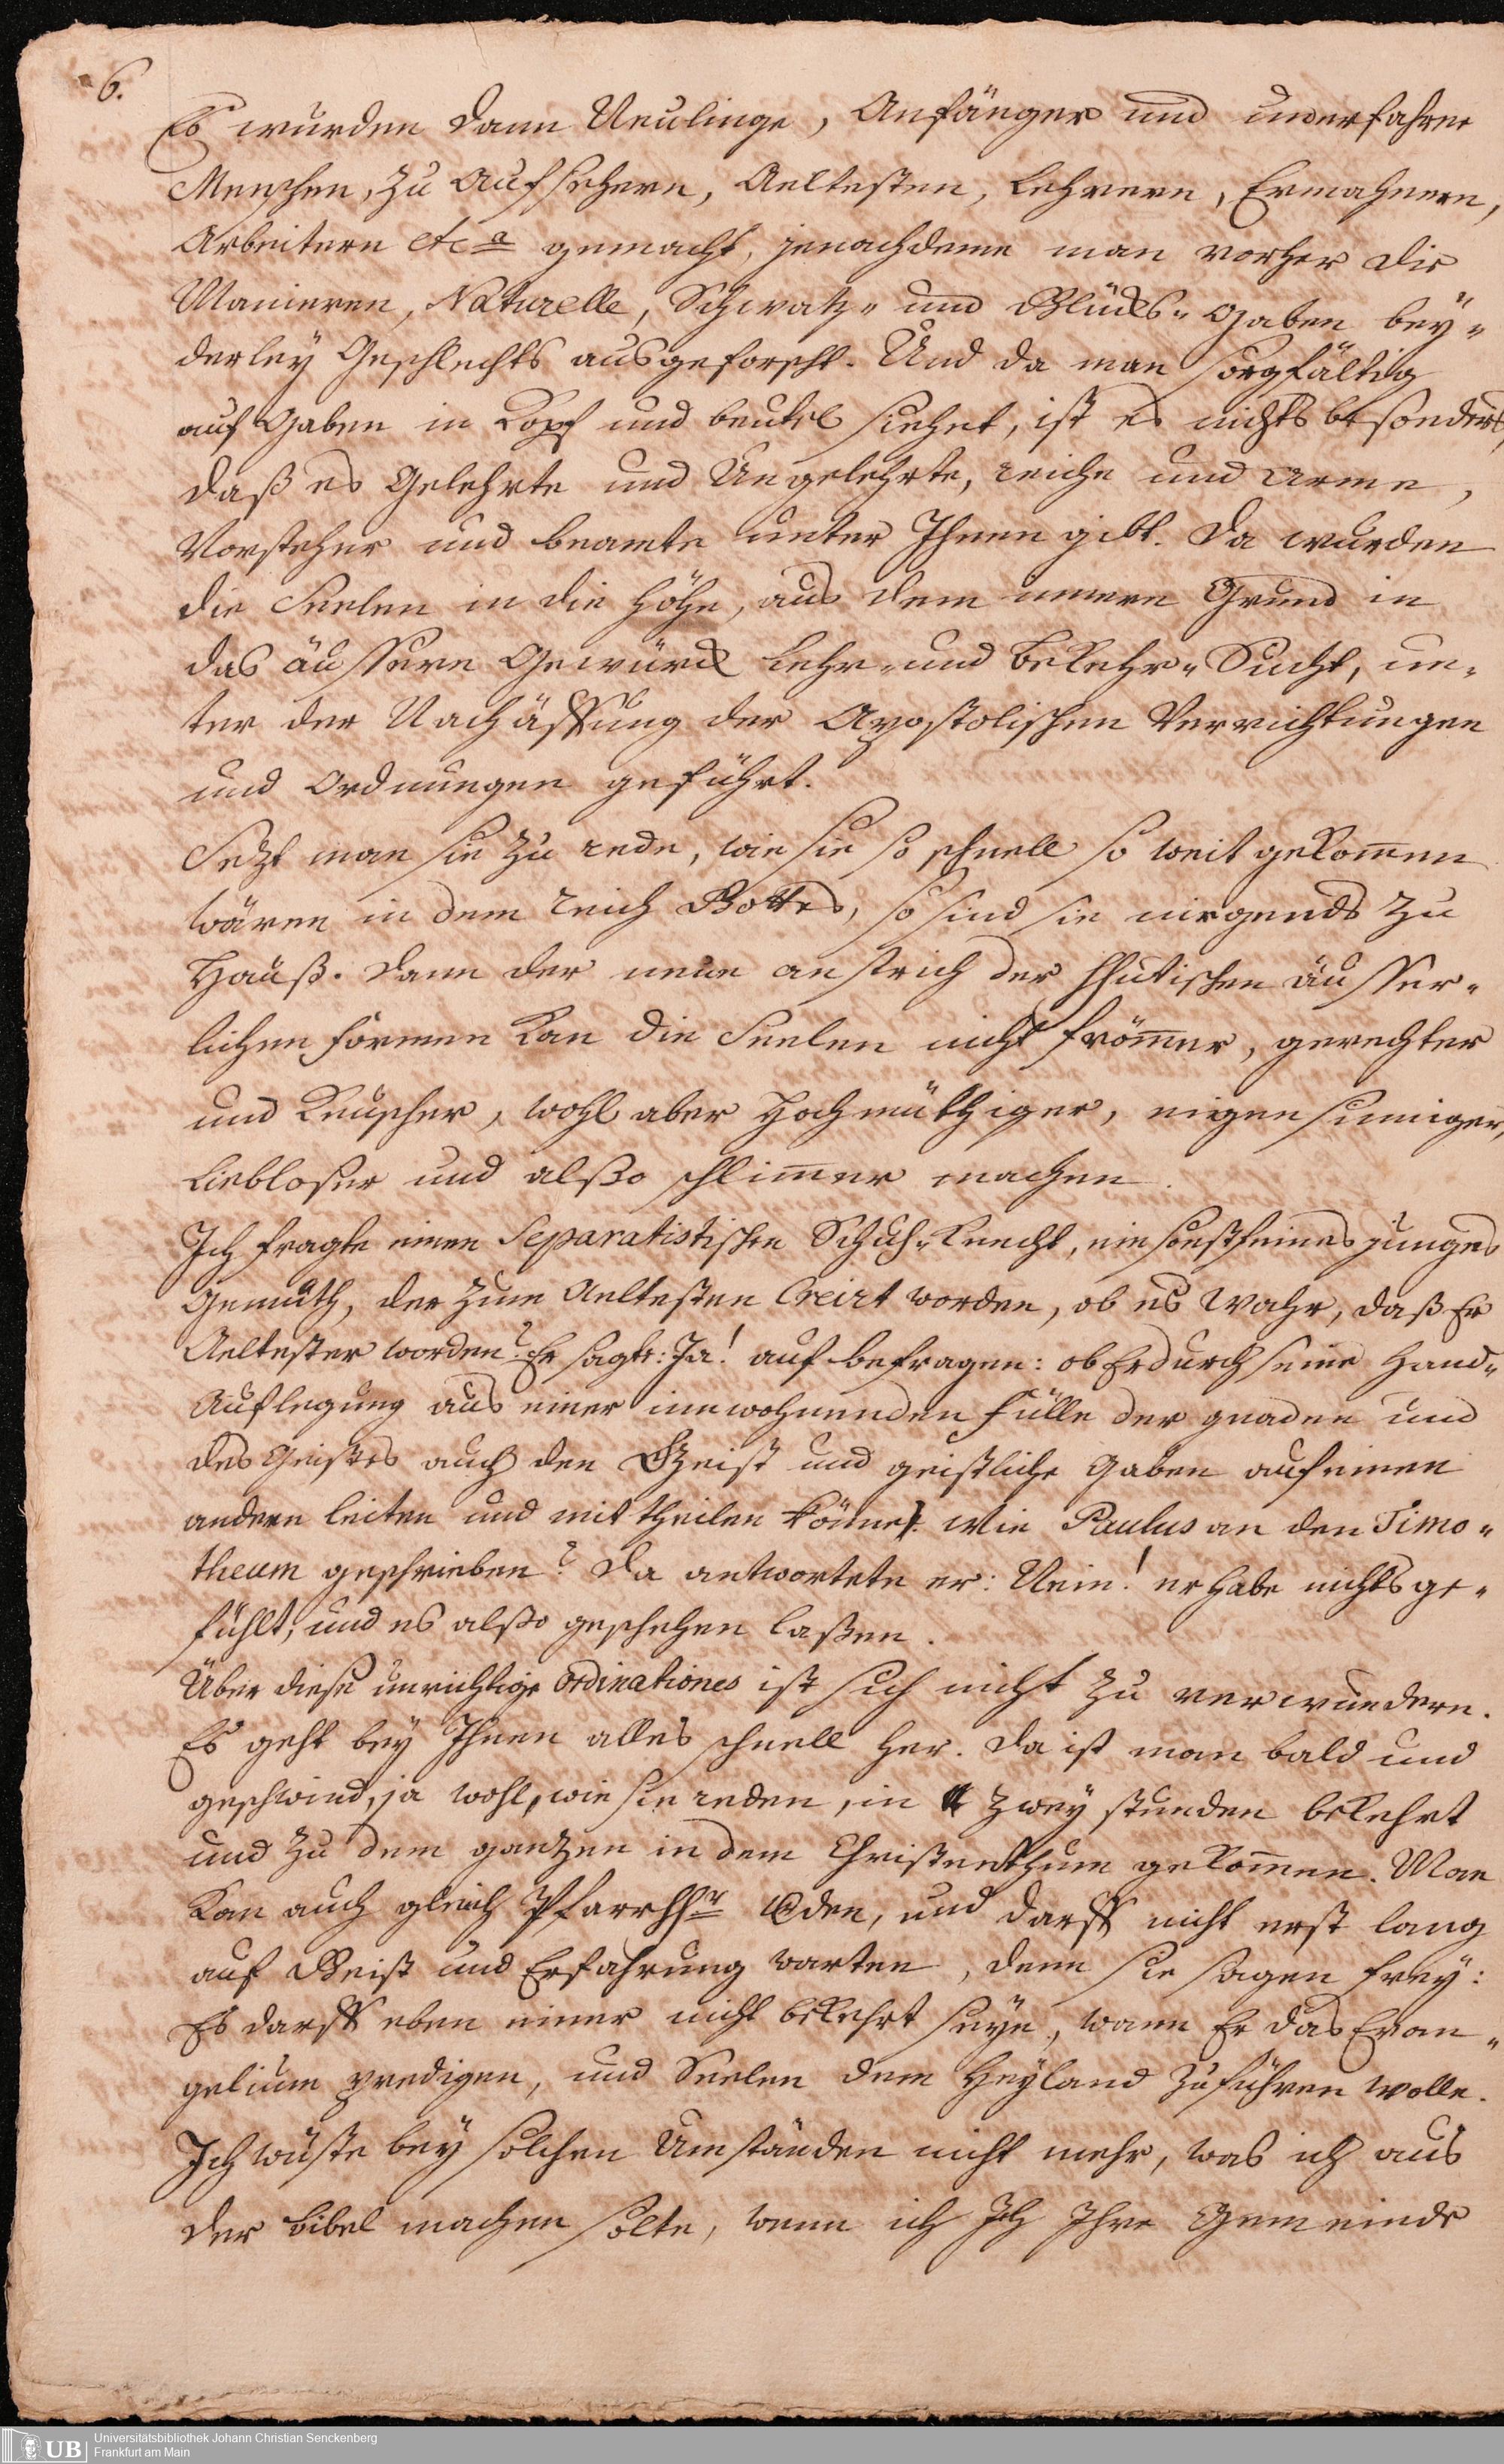 6.
Es wurden dann Neulinge, Anfänger und unerfahrne
Menschen, zu Aufsehern, Aeltesten, Lehrern, Ermahnern,
Arbeitern etca gemacht, jenachdeme man vorher die
Manieren, Naturelle, Schwatz- und Glücks-Gaben bey-
derley Geschlechts ausgeforscht. Und da man sorgfältig
auf Gaben in Kopf und beutel siehet, ist es nichts besonders,
daß es Gelehrte und Ungelehrte, reiche und arme,
Vorsteher und beamte unter Ihnen gibt. Da wurden
die Seelen in die Höhe, aus dem innern Grund in
das äussere Gewürck Lehr- und bekehr-Sucht, un-
ter der Nachäffung der Apostolischen Verrichtungen
und Ordnungen geführt.
Sezt man sie zu rede, wie sie so schnell so weit gekom̄en
wären in dem reich Gottes, so sind sie nirgends zu
Hauß. Dann der neue anstrich der hhutischen äusser-
lichen formen kan die Seelen nicht from̄er, gerechter
und keuscher, wohl aber hochmüthiger, eigensinniger,
Liebloser und also schlim̄er machen.
Ich fragte einen Separatistischen Schuh-Knecht, ein sonst feines junges
Gemüth, der zum Aeltesten Creirt worden, ob es wahr, daß Er
Aeltester worden? Er sagte: Ja! auf befragen: ob Er durch seine Hand-
Auflegung aus einer innwohnenden fülle der gnaden und
des Geistes auch den Geist und geistliche Gaben auf einen
andern leiten und mittheilen könne? wie Paulus an den Timo-
theum geschrieben? Da antwortete er: Nein! er habe nichts ge-
fühlt, und es also geschehen laßen.
Über diese unrichtige Ordinationes ist sich nicht zu verwundern.
Es geht bey Ihnen alles schnell her. Da ist man bald und
geschwind, ja wohl, wie sie reden, in zwey stunden bekehrt
und zu dem gantzen in dem Christenthum gekom̄en. Man
kan auch gleich Pfarrhhr werden, und darff nicht erst lang
auf Geist und Erfahrung warten, denn sie sagen frey:
Es darff eben einer nicht bekehrt seyn, wann Er das Evan-
gelium predigen, und Seelen dem Heyland zuführen wolle.
Ich wüste bey solchen Umständen nicht mehr, was ich aus
der bibel machen solte, wenn ich Ich Ihre Gemeinde
Universitätsbibliothek Johann Christian Senckenberg
Frankfurt am Main
UB